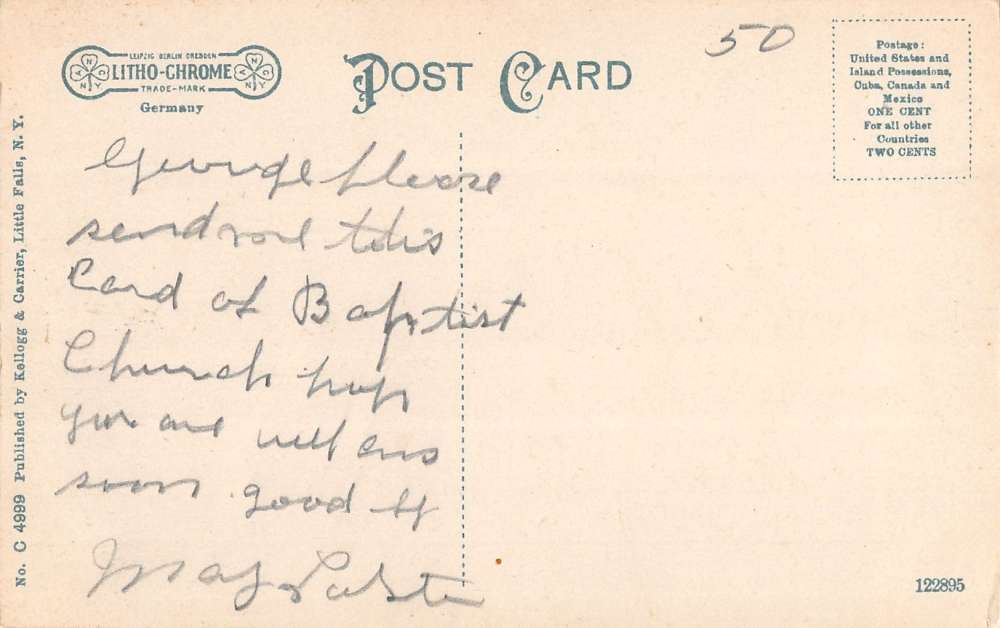 LEIPZIG BERLIN DRESDEN
LITHO-CHROME
TRADE-MARK
Germany
POST CARD
50
Postage:
United States and
Island Possessions,
Cuba, Canada and
Mexico
ONE CENT
For all other
Countries
TWO CENTS
George Please
send me this
Card of Baptist
Church hop
you are well ans
soon good by
May
No. C 4999 Published by Kellogg & Carrier, Little Falls, N. Y.
122895